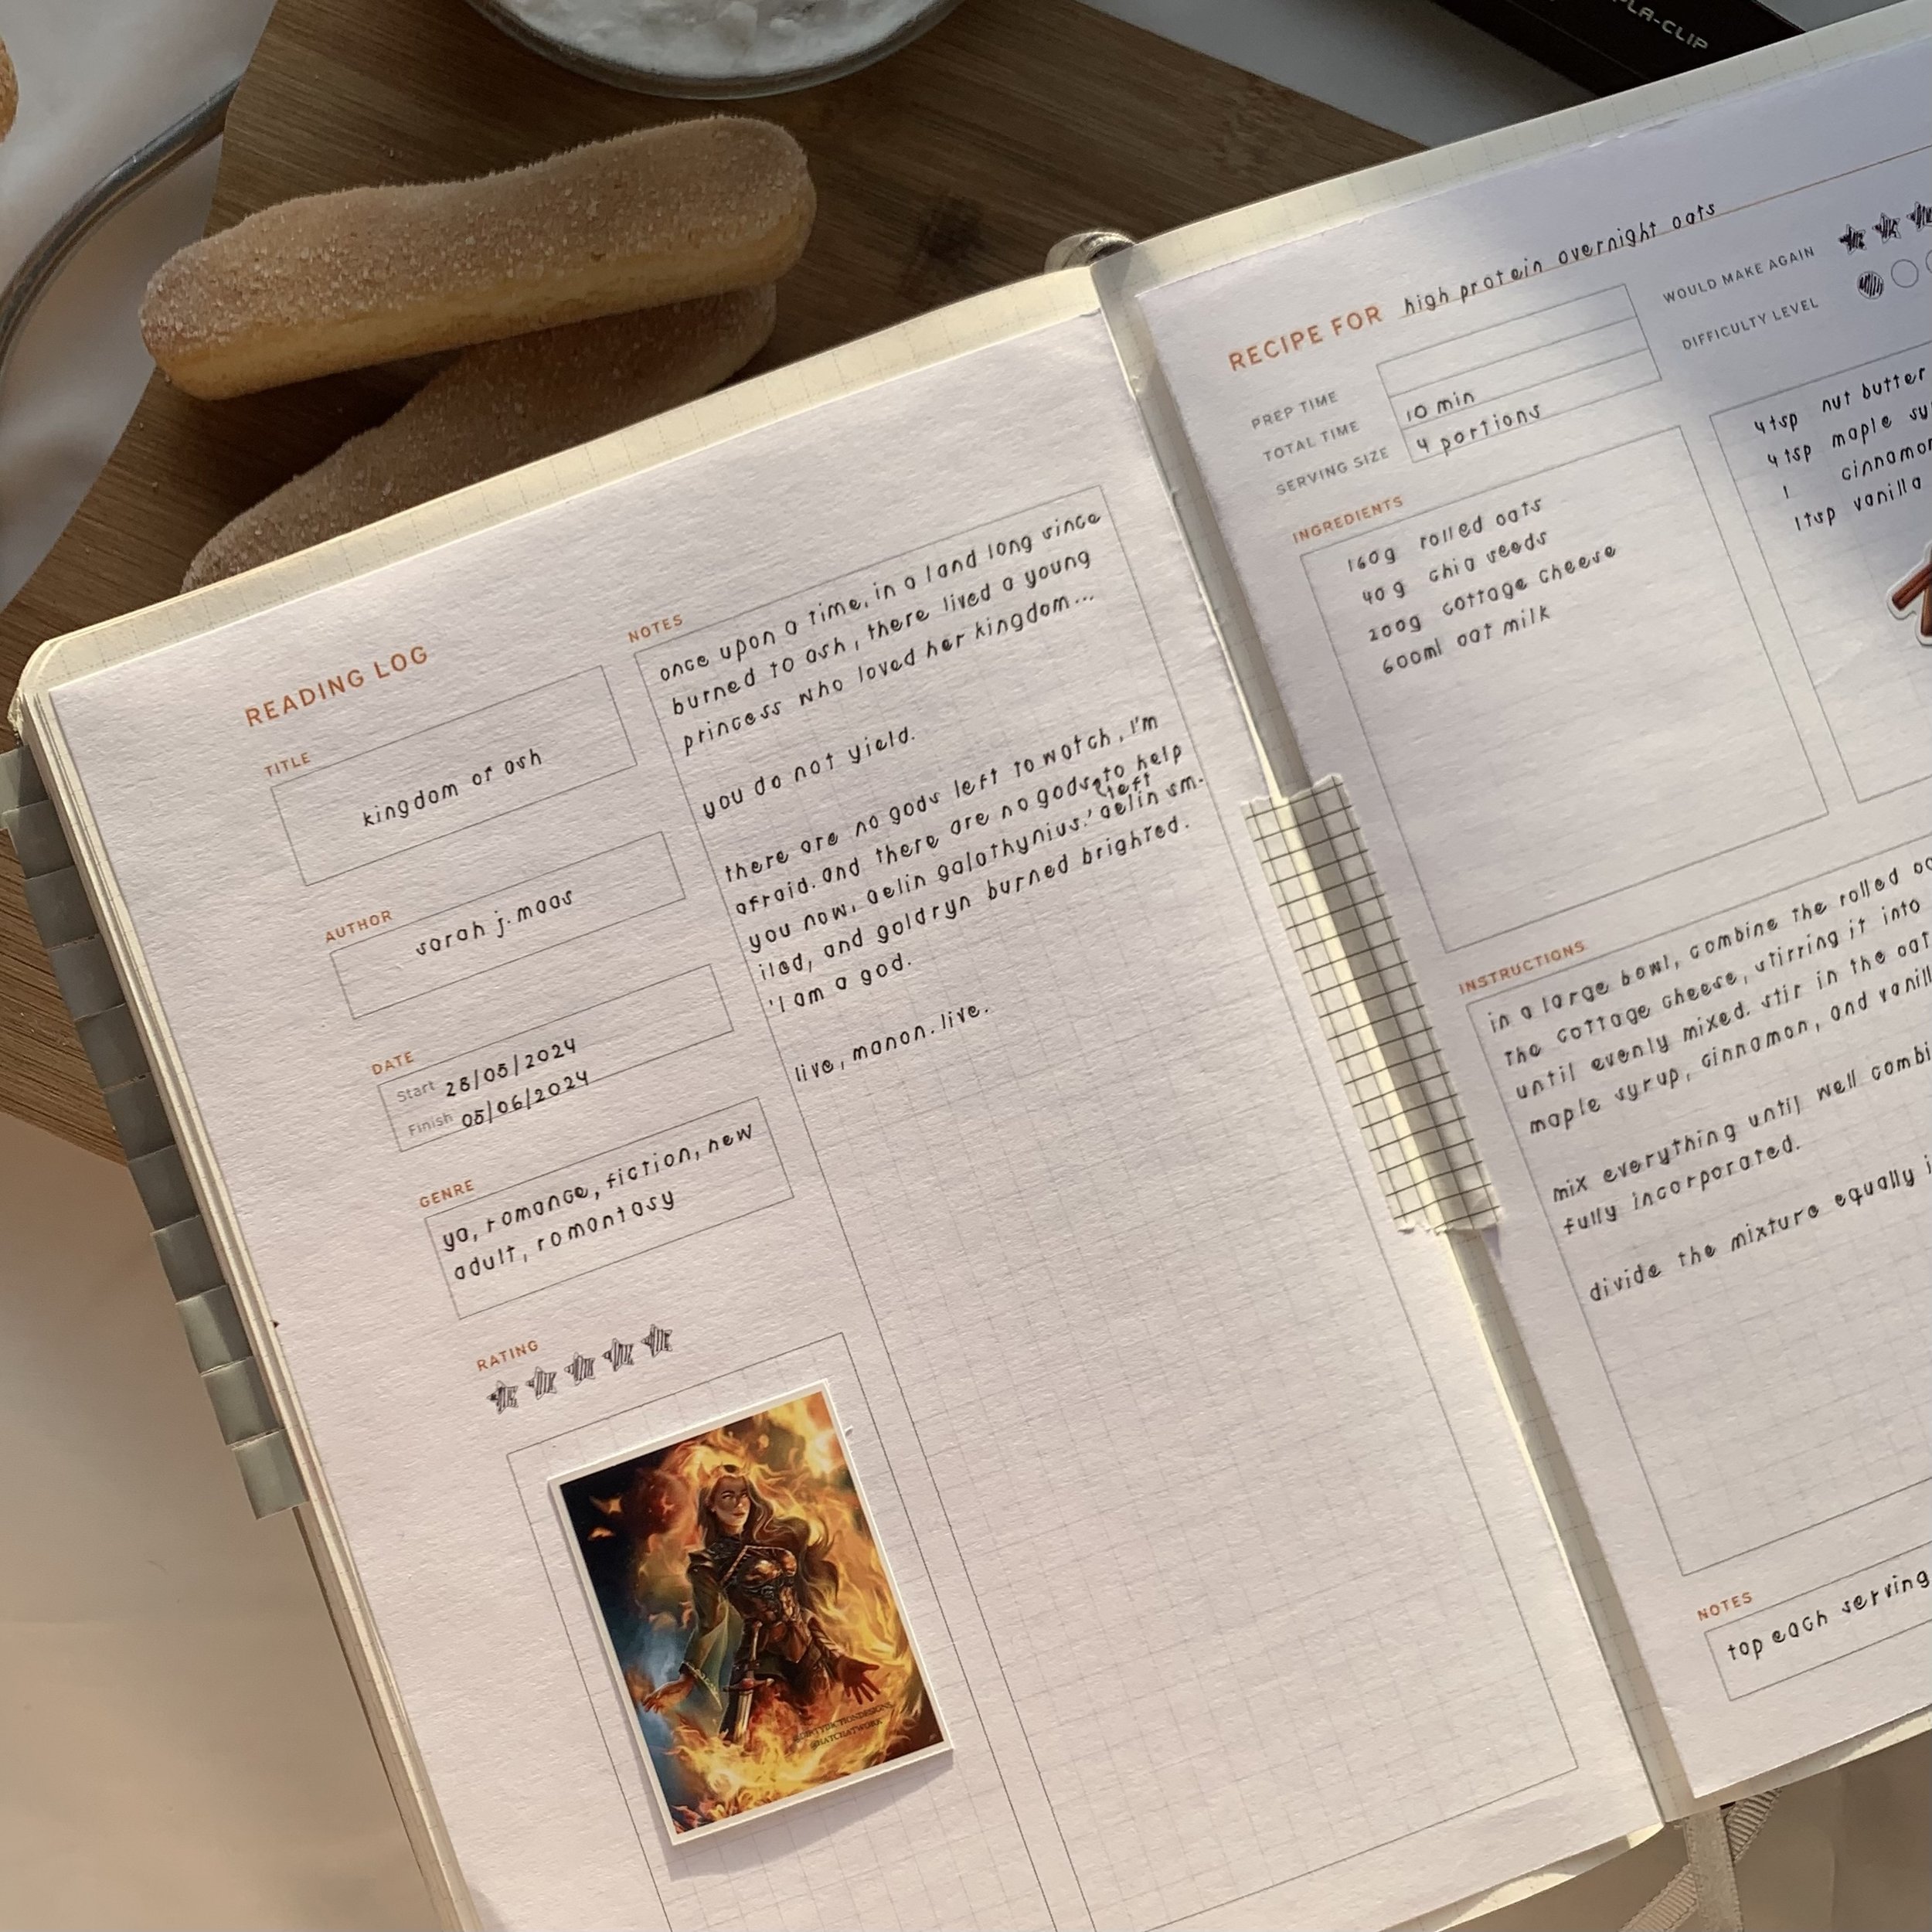 PLA-CLIP
READING LOG
TITLE
kingdom of ash
AUTHOR
sarah j. maas
DATE
Start 28/05/2024
Finish 05/06/2024
GENRE
ya, romance, fiction, new
adult, romantasy
RATING
NOTES
once upon a time, in a land long since
burned to ash, there lived a young
princess who loved her kingdom...
you do not yield.
there are no gods left to watch, I'm
afraid. and there are no gods to help
left
you now, aelin galathynius.' aelin sm-
iled, and goldryn burned brighted.
'I am a god.
live, manon. live.
@HATCHATWORK
RECIPE FOR high protein overnight oats
PREP TIME
TOTAL TIME 10 min
SERVING SIZE 4 portions
WOULD MAKE AGAIN
DIFFICULTY LEVEL
INGREDIENTS
160g rolled oats
40g chia seeds
200g cottage cheese
600ml oat milk
4tsp nut butter
4tsp maple
1 cinnamon
1tsp vanilla
INSTRUCTIONS
in a large bowl, combine the rolled
the cottage cheese, stirring it into
until evenly mixed. stir in the oat
maple syrup, cinnamon, and
mix everything until well
fully incorporated.
divide the mixture equally
NOTES
top each serving